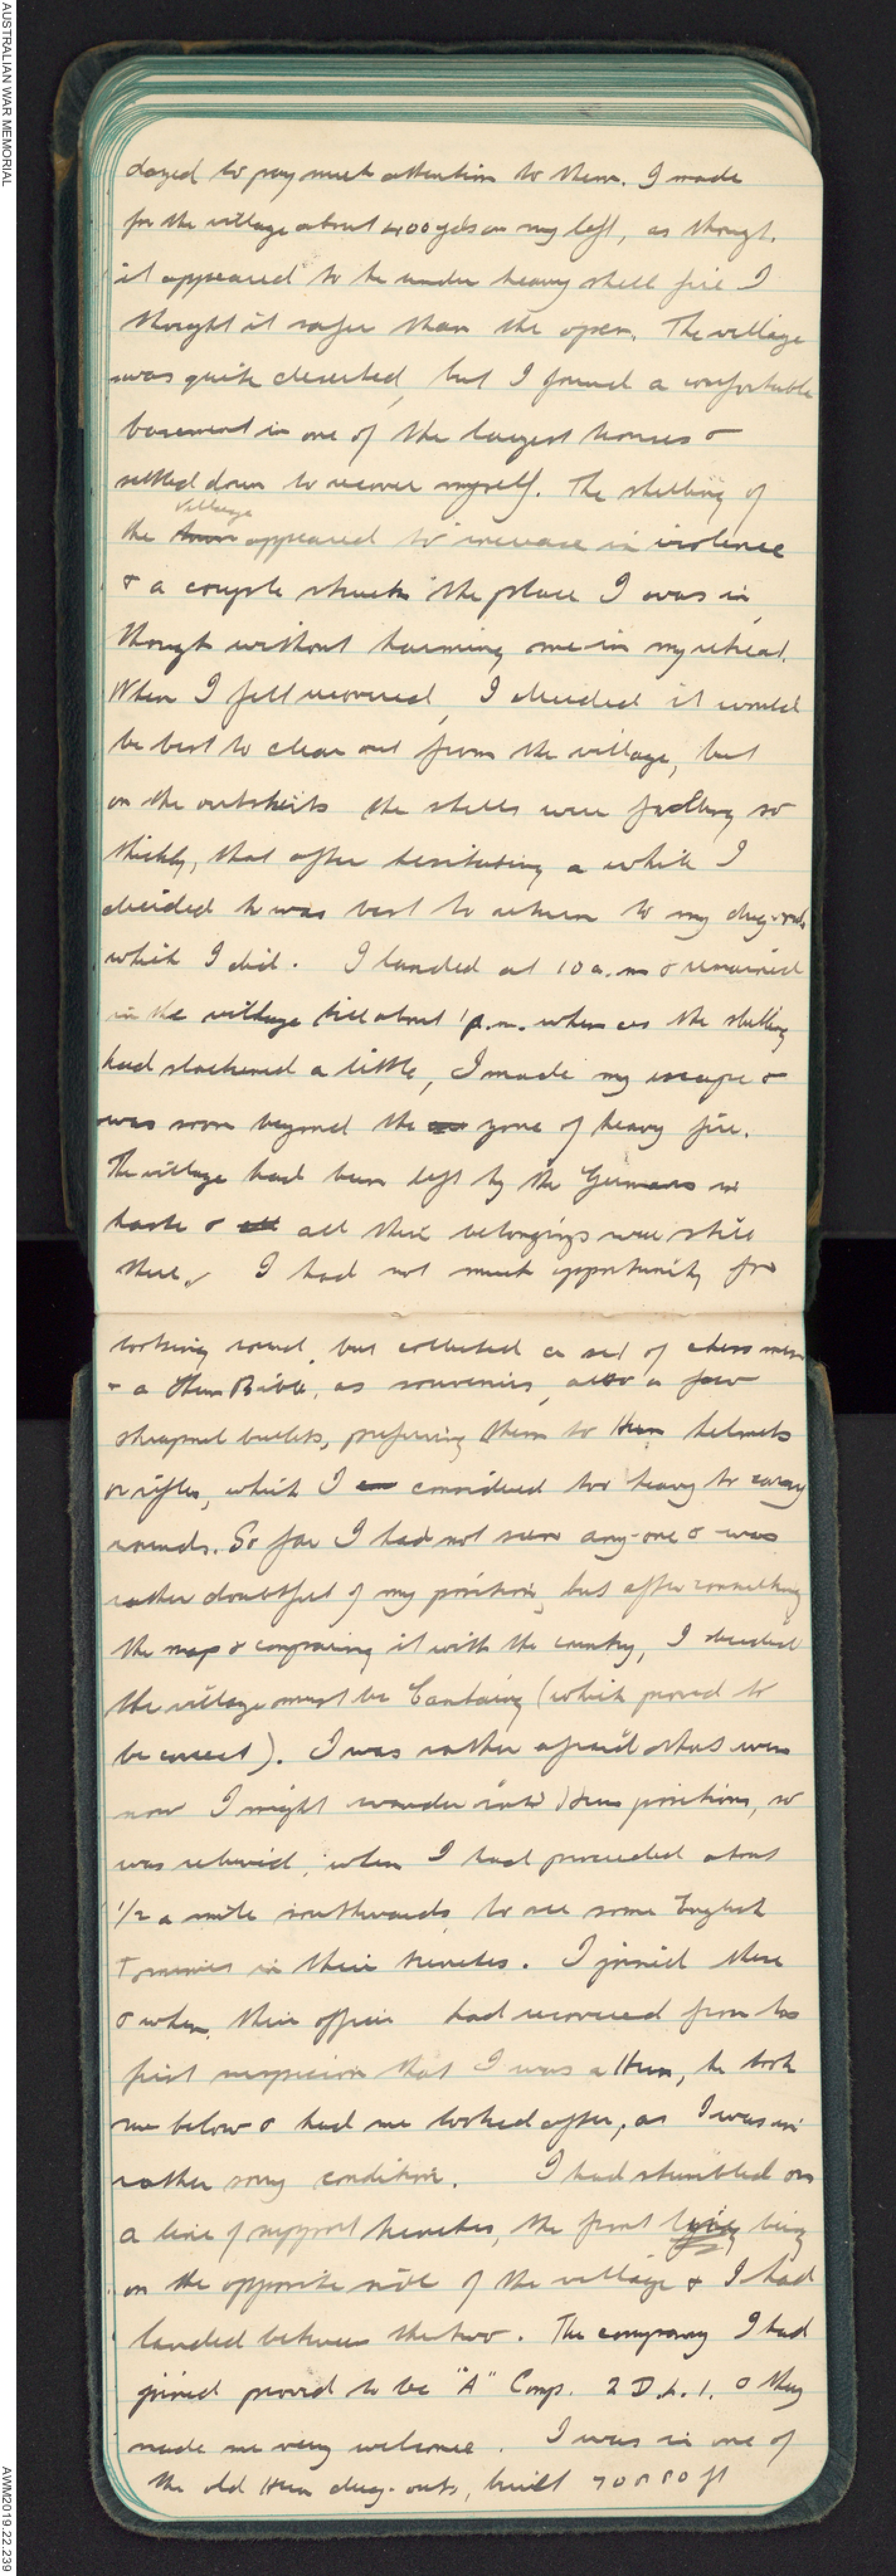 AUSTRALIAN WAR MEMORIAL
dazed to pay much attention to them. I made
for the village about 400 yds on my left, as though
it appeared to be under heavy shell fire I
thought it safer than the open. The village
was quite deserted, but I found a comfortable
basement in one of the largest houses &
settled down to recover myself. The shelling of
village
the town appeared to increase in violence
& a couple struck the place I was in,
though without harming me in my retreat.
When I felt recovered, I decided it would
be best to clear out from the village, but
on the outskirts the shells were falling so
thickly, that after hesitating a while I
decided it was best to return to my dug-out
which I did. I landed at 10 a.m. & remained
in the village till about 1 p.m. when as the shelling
had slackened a little, I made my escape &
was soon beyond the zone of heavy fire.
The village had been left by the Germans in
haste & all all their belongings were still
there. I had not much opportunity for
looking round, but collected a set of chess men
& a Hun Bible, as souvenirs, also a few
shrapnel bullets, preferring them to Hun helmets
or rifles, which I considered too heavy to carry
rounds. So far I had not seen any-one & was
rather doubtful of my position, but after consulting
the map & comparing it with the country, I decided
the village must be Cantaing (which proved to
be correct). I was rather afraid that even
now I might wander into Hun positions, so
was relieved, when I had proceeded about
1/2 a mile southwards to see some English
Tommies in their trenches. I joined these
& when their officer had recovered from his
first suspicion that I was a Hun, he took
me below & had me looked after, as I was in
rather sorry condition. I had stumbled on
a line of support trenches, the front being
on the opposite side of the village & I had
landed between the two. The company I had
joined proved to be "A" Comp. 2 D.L.I. & they
made me very welcome. I was in one of
the old Hun dug-outs, built 70 or 80 ft
AWM2019.22.239